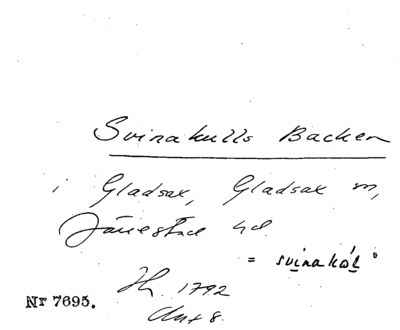 Svinakulls Backen
i Gladsax, Gladsax sn,
Järrestad hd.
= svinakål
Nr 7695.
1792